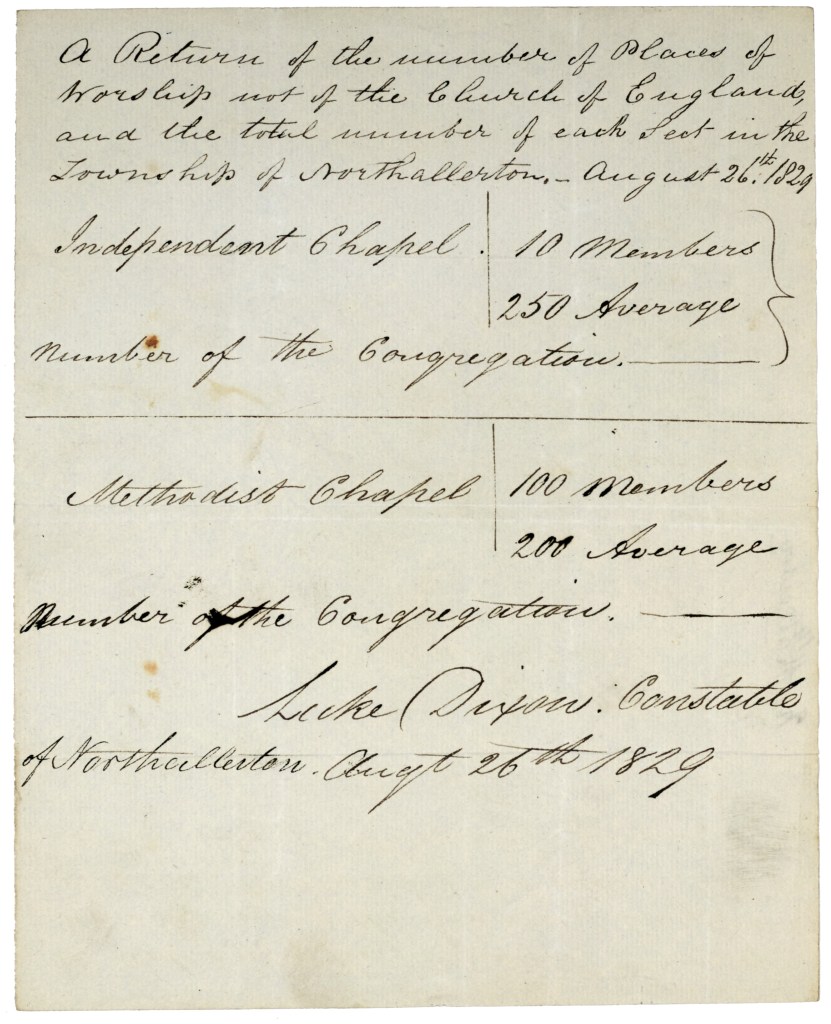 A Return of the number of Places of
Worship not of the Church of England,
and the total number of each Sect in the
Township of Northallerton. – August 26.th 1829
Independent Chapel . 10 Members
250 Average
number of the Congregation.
Methodist Chapel 100 Members
200 Average
number of the Congregation.
Luke Dixon. Constable
of Northallerton. Augt 26th 1829